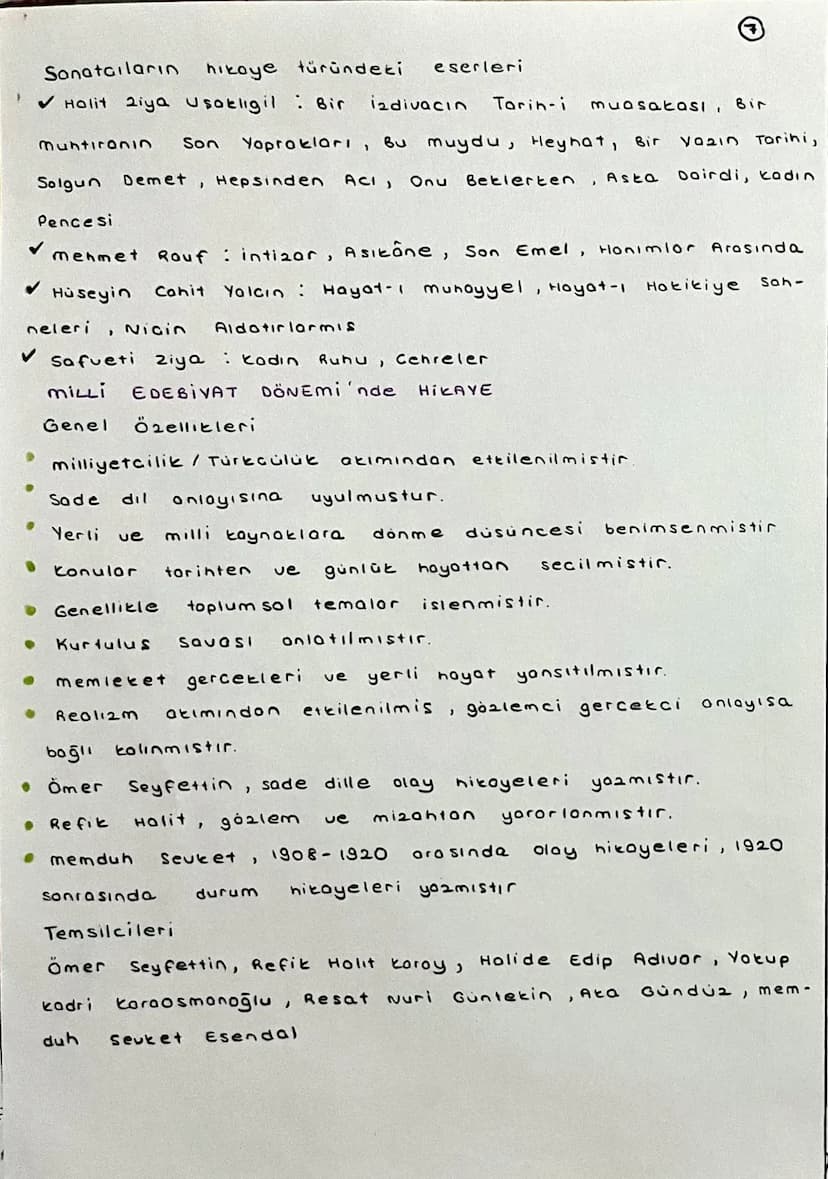 7
Sanatcıların hikaye türündeki eserleri
✓ Halit Ziya Usaklıgil : Bir izdivacın Tarih-i muasakası, Bir
muhtıranın Son Yaprakları, Bu muydu, Heyhat, Bir Yazın Tarihi,
Solgun Demet, Hepsinden Acı, Onu Beklerken, Aska Dairdi, kadın
Pencesi
✓ mehmet Rauf : intizar, Asıkâne, Son Emel, Hanımlar Arasında
✓ Hüseyin Cahit Yalcın : Hayat-ı muhayyel, Hayat-ı Hakikiye Sah-
neleri, Nicin Aldatırlarmıs
✓ Safveti Ziya : kadın Ruhu, Cehreler
milli EDEBİYAT DÖNEMİ'nde HİKAYE
Genel Özellikleri
• milliyetcilik / Türkcülük akımından etkilenilmistir.
• Sade dil anlayısına uyulmustur.
• Yerli ve milli kaynaklara dönme düsüncesi benimsenmistir
• konular tarihten ve günlük hayattan secilmistir.
• Genellikle toplumsal temalar islenmistir.
• Kurtulus savası anlatılmıstır.
• memleket gercekleri ve yerli hayat yansıtılmıstır.
• Realizm akımından etkilenilmis, gözlemci gercekci anlayısa
bağlı kalınmıstır.
• Ömer Seyfettin, sade dille olay hikayeleri yazmıstır.
• Refik Halit, gözlem ve mizahtan yararlanmıstır.
• memduh Sevket, 1908-1920 arasında olay hikayeleri, 1920
sonrasında durum hikayeleri yazmıstır
Temsilcileri
Ömer Seyfettin, Refik Halit karay, Halide Edip Adıvar, Yakup
kadri karaosmanoğlu, Resat Nuri Güntekin, Aka Gündüz, mem-
duh Sevket Esendal